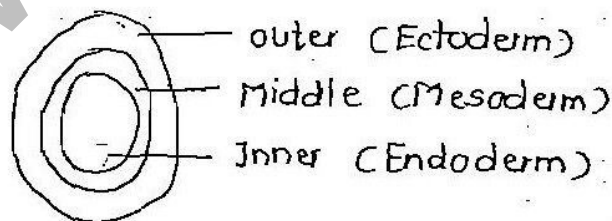 outer (Ectoderm)
Middle (Mesoderm)
Inner (Endoderm)